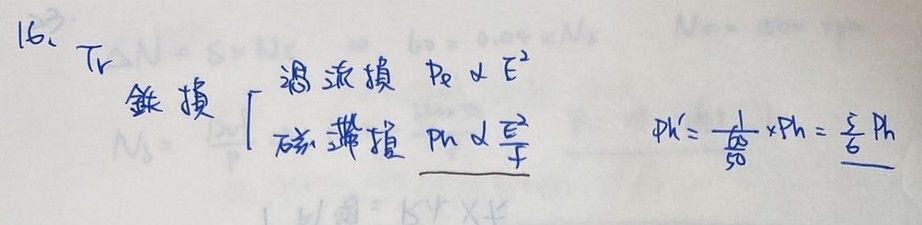 16、
Tr
鉄損
渦流損 Pe ∝ E²
磁滯損 Ph ∝ E²/f
Ph' = 1/(60/50) × Ph = 5/6 Ph